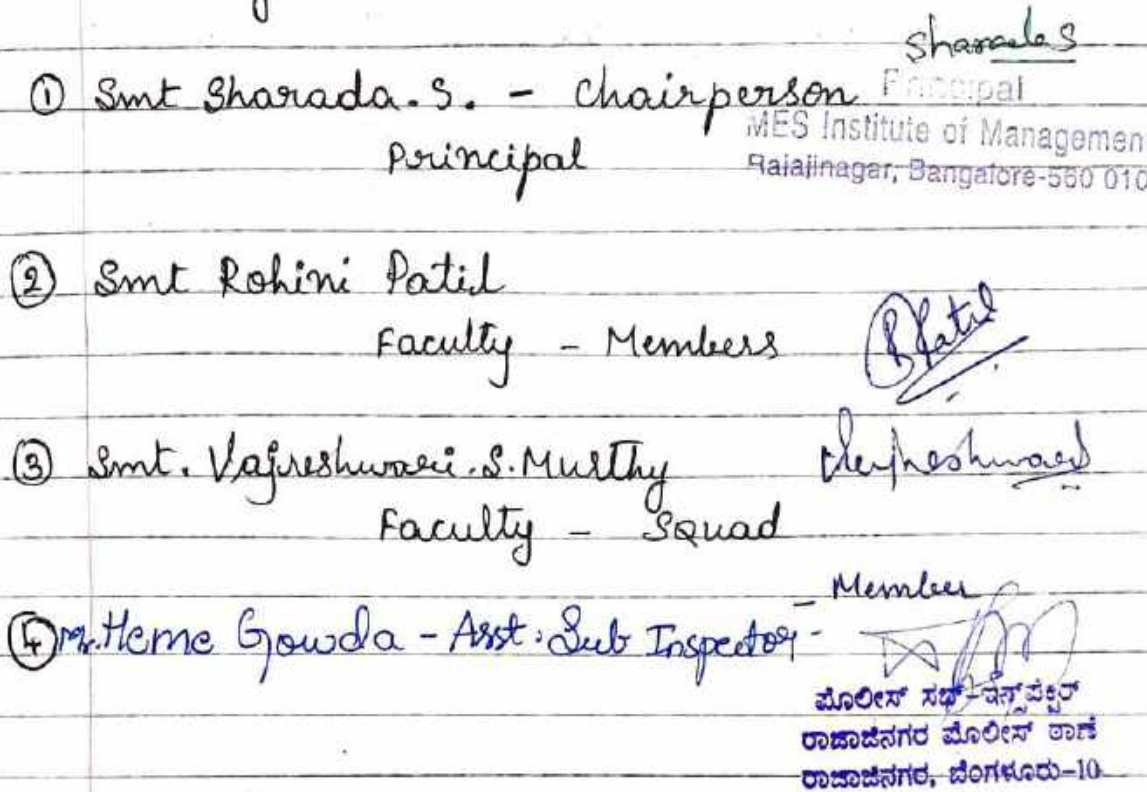 Sharada S
① Smt Sharada. S. - Chairperson
Principal
Principal
MES Institute of Managemen
Rajajinagar, Bangalore-560 010
② Smt Rohini Patil
Faculty - Members
R Patil
③ Smt. Vajreshwari. S. Murthy
Vajreshwari
Faculty - Squad
④ Mr. Heme Gowda - Asst. Sub Inspector - Member
ಪೊಲೀಸ್ ಸಬ್-ಇನ್ಸ್‌ಪೆಕ್ಟರ್
ರಾಜಾಜಿನಗರ ಪೊಲೀಸ್ ಠಾಣೆ
ರಾಜಾಜಿನಗರ, ಬೆಂಗಳೂರು-10